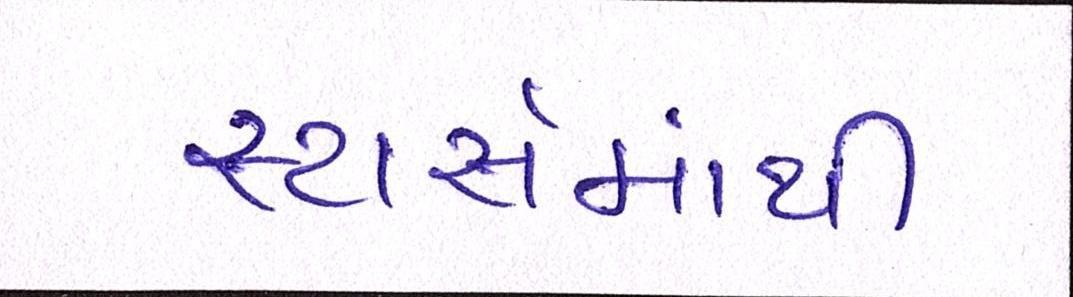 સ્ટાર્સમાંથી